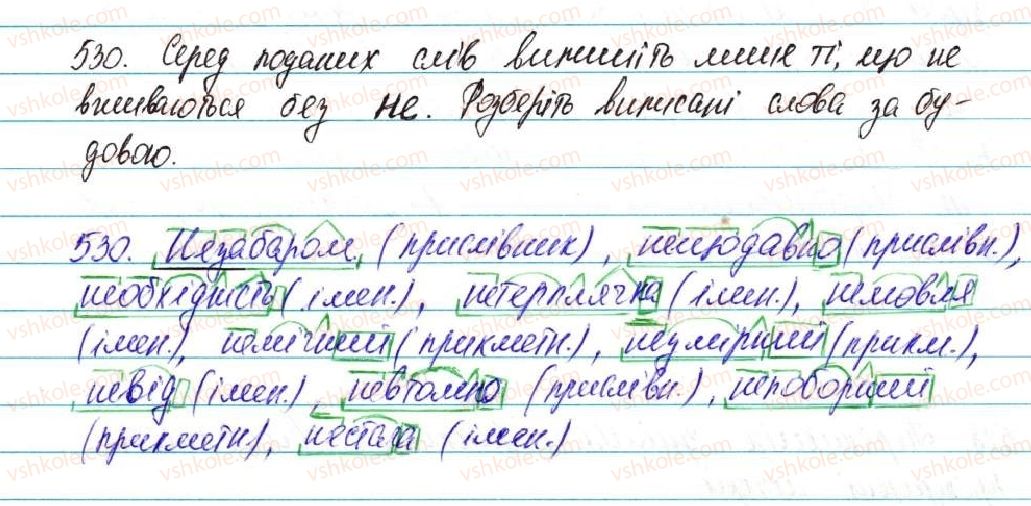 530. Серед поданих слів випишіть лише ті, що не
вживаються без не. Розберіть виписані слова за бу-
довою.
530. Незабаром (прислівник), нещодавно (прислівн.),
необхідність (імен.), нетерплячка (імен.), немовля
(імен.), немічний (прикметн.), неумирний (прикм.),
невід (імен.), невтомно (прислівн.), непоборний
(прикметн), нестала (імен.)
vshkole.com